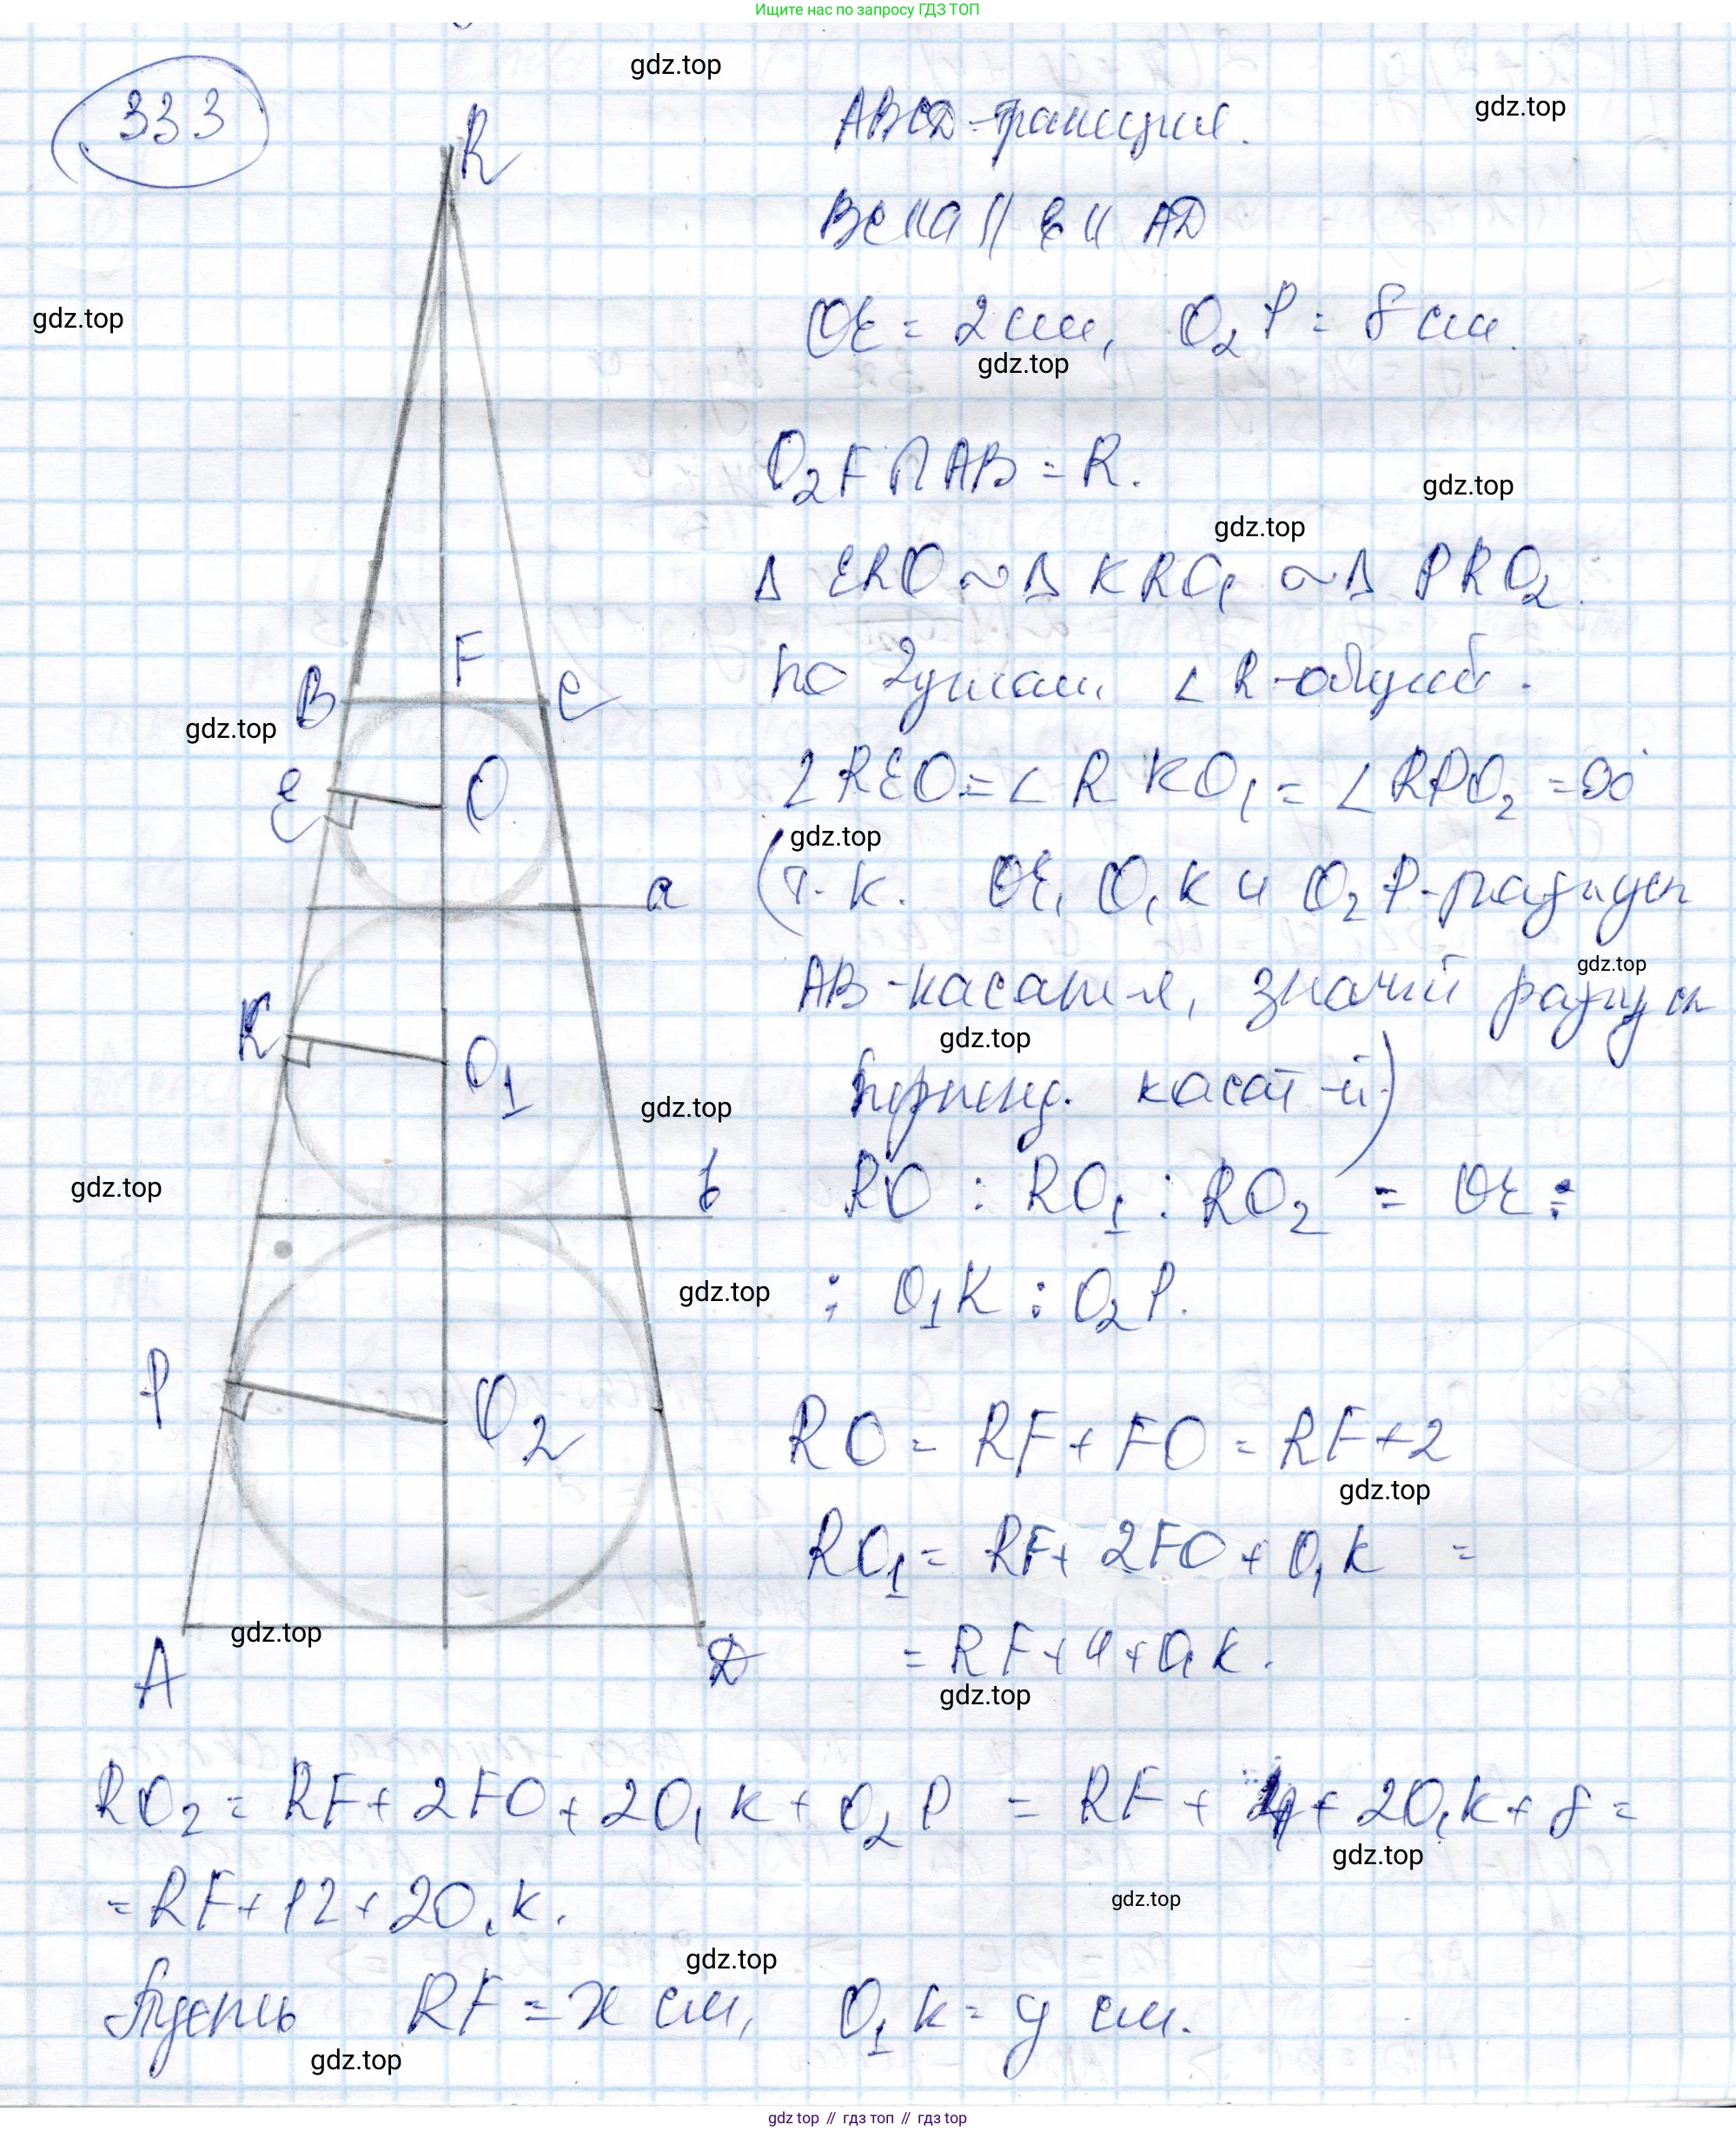 Ищите нас по запросу ГДЗ ТОП
333
gdz.top
gdz.top
R
ABCD - трапеция.
BC || a || b || AD
gdz.top
OE = 2 см, O₂P = 8 см.
gdz.top
O₂F ∩ AB = R.
gdz.top
gdz.top
Δ ERO ~ Δ KRO₁ ~ Δ PRO₂.
по 2 углам, ∠R - общий.
B
F
C
gdz.top
∠REO = ∠RKO₁ = ∠RPO₂ = 90°
E
O
gdz.top
a
(т.к. OE, O₁K и O₂P - радиусы
gdz.top
AB - касат-я, значит радиусы
K
O₁
gdz.top
gdz.top
перпенд. касат-й)
gdz.top
b
RO : RO₁ : RO₂ = OE :
gdz.top
: O₁K : O₂P.
P
O₂
RO = RF + FO = RF + 2
gdz.top
RO₁ = RF + 2FO + O₁K =
gdz.top
A
D
= RF + 4 + O₁K.
gdz.top
RO₂ = RF + 2FO + 2O₁K + O₂P = RF + 4 + 2O₁K + 8 =
gdz.top
= RF + 12 + 2O₁K.
gdz.top
gdz.top
Пусть RF = x см, O₁K = y см.
gdz.top
gdz top // гдз топ // gdz top